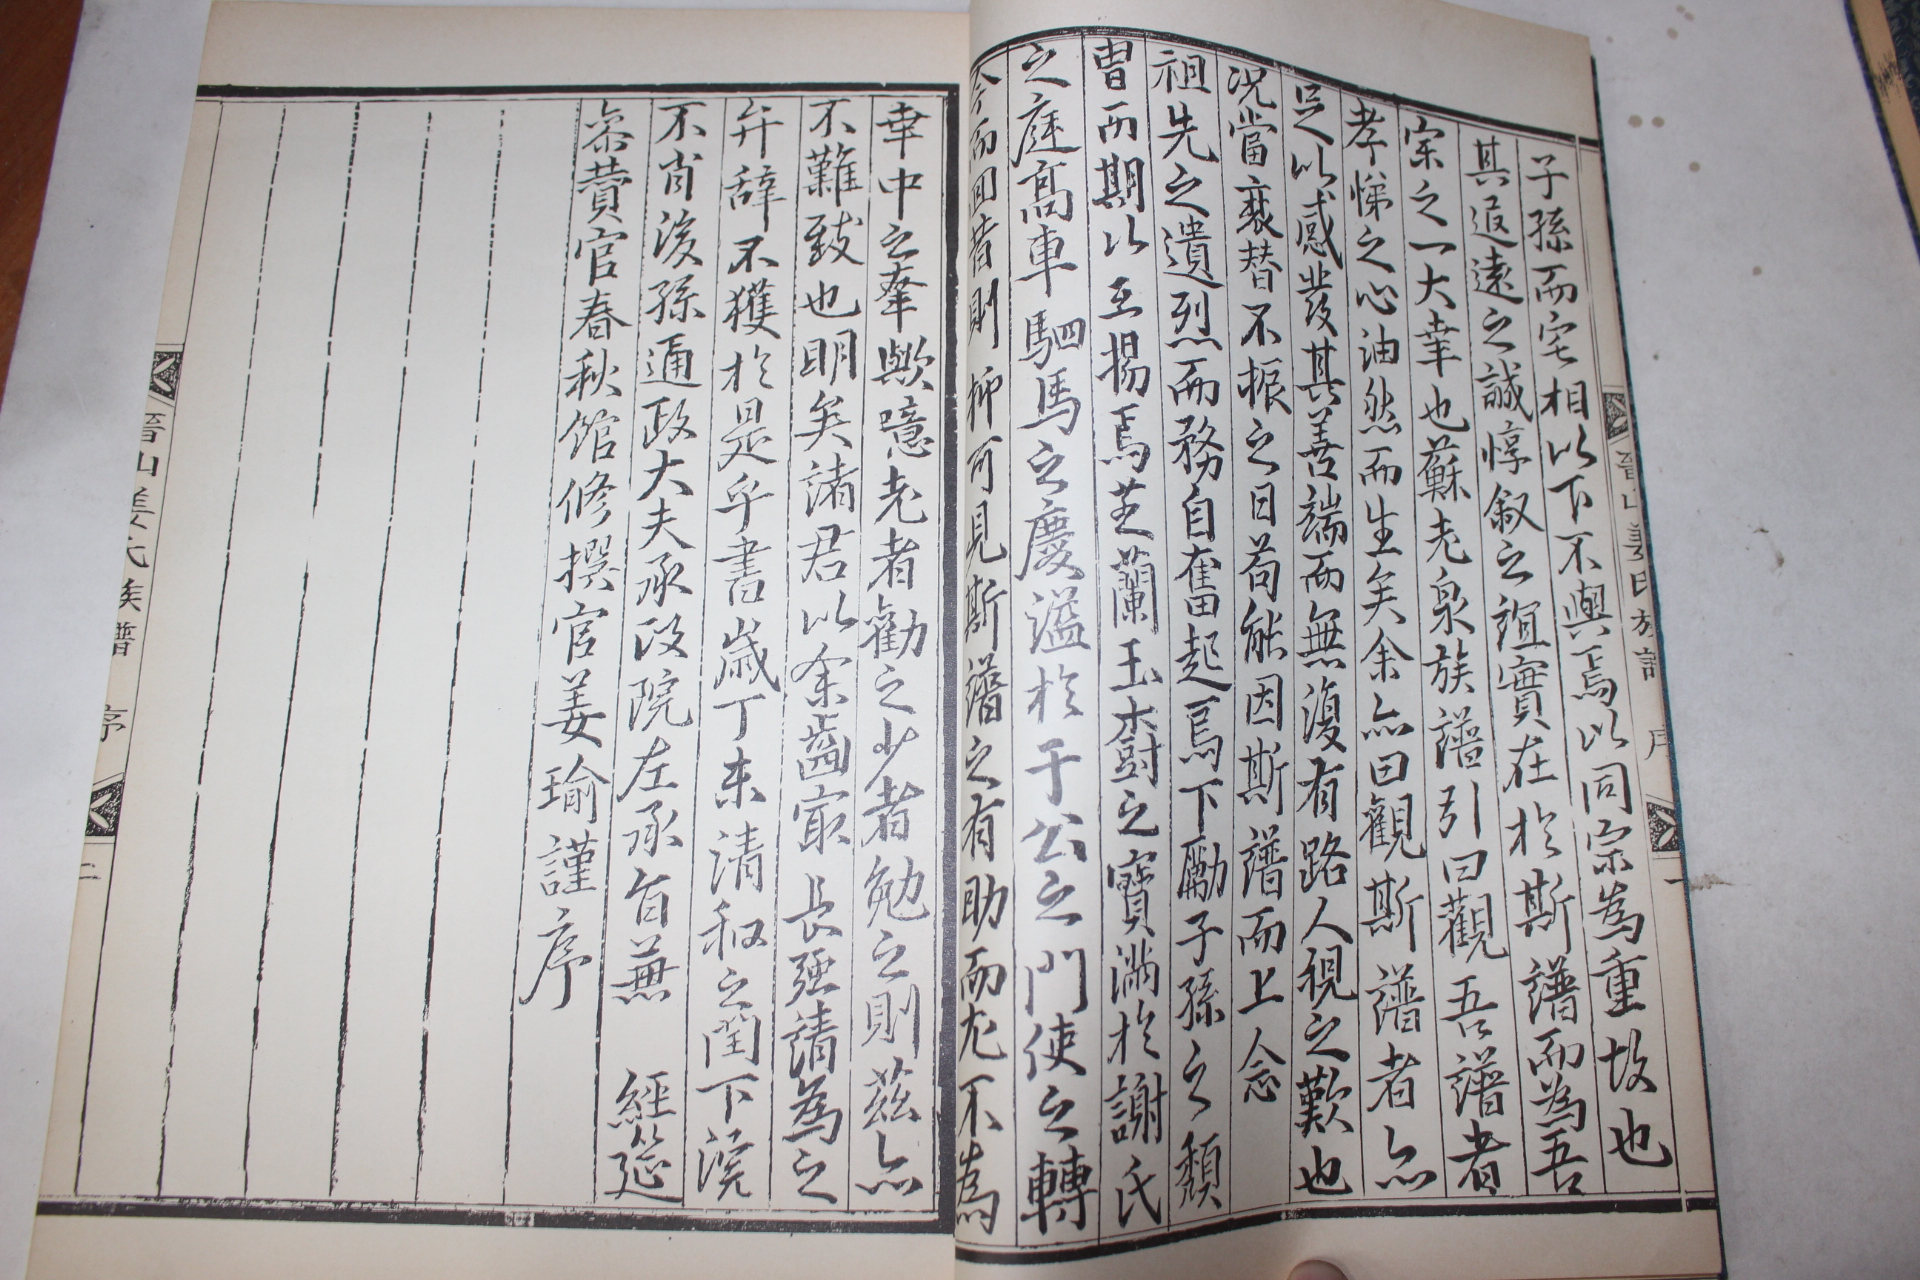 子孫而宅相以下不與焉以同宗為重故也
其追遠之誠惇叙之誼實在於斯譜而為吾
宗之一大幸也蘇老泉族譜引曰觀吾譜者
孝悌之心油然而生矣余亦曰觀斯譜者亦
足以感發其善端而無復有路人視之歎也
況當衰替不振之日苟能因斯譜而上念
祖先之遺烈而務自奮起焉下勵子孫之頹
冑而期以立揚焉芝蘭玉樹之寶滿於謝氏
之庭高車駟馬之慶溢於于公之門使之轉
今而回昔則抑可見斯譜之有助而尤不為
幸中之幸歟噫老者勸之少者勉之則茲亦
不難致也明矣諸君以余齒最長強請為之
弁辭不獲於是乎書歲丁未清和之閏下浣
不肖後孫通政大夫承政院左承旨兼 經筵
參贊官春秋館修撰官姜瑜謹序
晉山姜氏族譜 序 一
晉山姜氏族譜 序 二